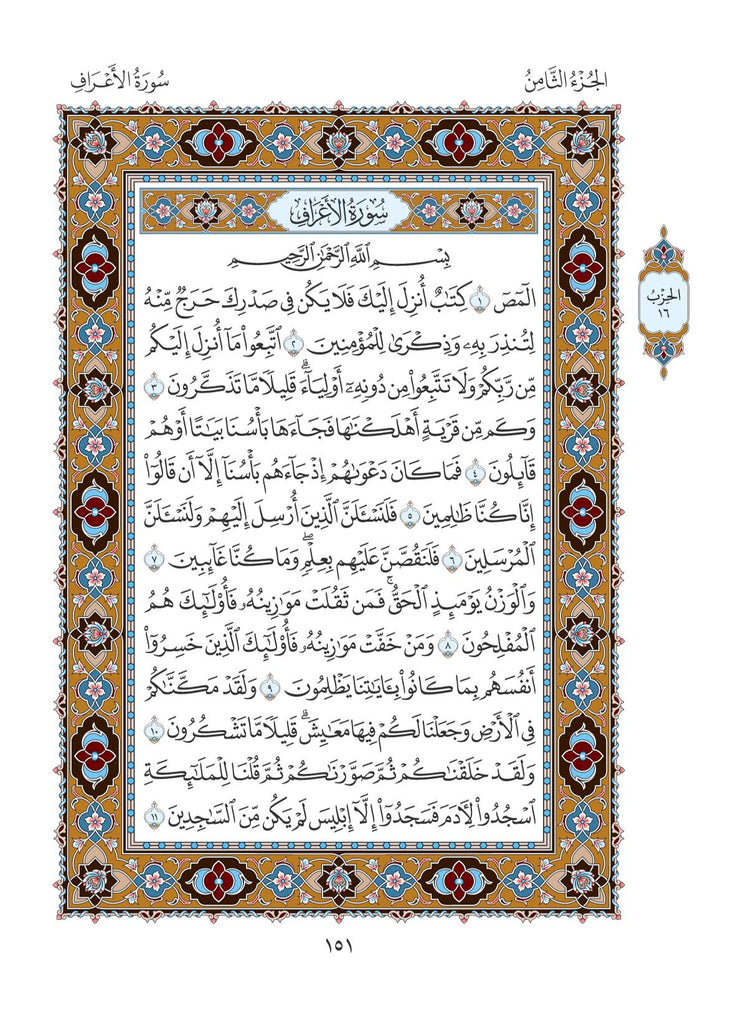 الجُزْءُ الثَّامِنُ
سُورَةُ الأَعْرَافِ
سُورَةُ الأَعْرَافِ
بِسْمِ ٱللَّهِ ٱلرَّحْمَٰنِ ٱلرَّحِيمِ
الٓمٓصٓ ١ كِتَٰبٌ أُنزِلَ إِلَيْكَ فَلَا يَكُن فِى صَدْرِكَ حَرَجٌ مِّنْهُ
لِتُنذِرَ بِهِۦ وَذِكْرَىٰ لِلْمُؤْمِنِينَ ٢ ٱتَّبِعُوا۟ مَآ أُنزِلَ إِلَيْكُم
مِّن رَّبِّكُمْ وَلَا تَتَّبِعُوا۟ مِن دُونِهِۦٓ أَوْلِيَآءَۗ قَلِيلًا مَّا تَذَكَّرُونَ ٣
وَكَم مِّن قَرْيَةٍ أَهْلَكْنَٰهَا فَجَآءَهَا بَأْسُنَا بَيَٰتًا أَوْ هُمْ
قَآئِلُونَ ٤ فَمَا كَانَ دَعْوَىٰهُمْ إِذْ جَآءَهُم بَأْسُنَآ إِلَّآ أَن قَالُوٓا۟
إِنَّا كُنَّا ظَٰلِمِينَ ٥ فَلَنَسْـَٔلَنَّ ٱلَّذِينَ أُرْسِلَ إِلَيْهِمْ وَلَنَسْـَٔلَنَّ
ٱلْمُرْسَلِينَ ٦ فَلَنَقُصَّنَّ عَلَيْهِم بِعِلْمٍۖ وَمَا كُنَّا غَآئِبِينَ ٧
وَٱلْوَزْنُ يَوْمَئِذٍ ٱلْحَقُّۚ فَمَن ثَقُلَتْ مَوَٰزِينُهُۥ فَأُو۟لَٰٓئِكَ هُمُ
ٱلْمُفْلِحُونَ ٨ وَمَنْ خَفَّتْ مَوَٰزِينُهُۥ فَأُو۟لَٰٓئِكَ ٱلَّذِينَ خَسِرُوٓا۟
أَنفُسَهُم بِمَا كَانُوا۟ بِـَٔايَٰتِنَا يَظْلِمُونَ ٩ وَلَقَدْ مَكَّنَّٰكُمْ
فِى ٱلْأَرْضِ وَجَعَلْنَا لَكُمْ فِيهَا مَعَٰيِشَۗ قَلِيلًا مَّا تَشْكُرُونَ ١٠
وَلَقَدْ خَلَقْنَٰكُمْ ثُمَّ صَوَّرْنَٰكُمْ ثُمَّ قُلْنَا لِلْمَلَٰٓئِكَةِ
ٱسْجُدُوا۟ لِـَٔادَمَ فَسَجَدُوٓا۟ إِلَّآ إِبْلِيسَ لَمْ يَكُن مِّنَ ٱلسَّٰجِدِينَ ١١
الحِزْبُ
١٦
١٥١